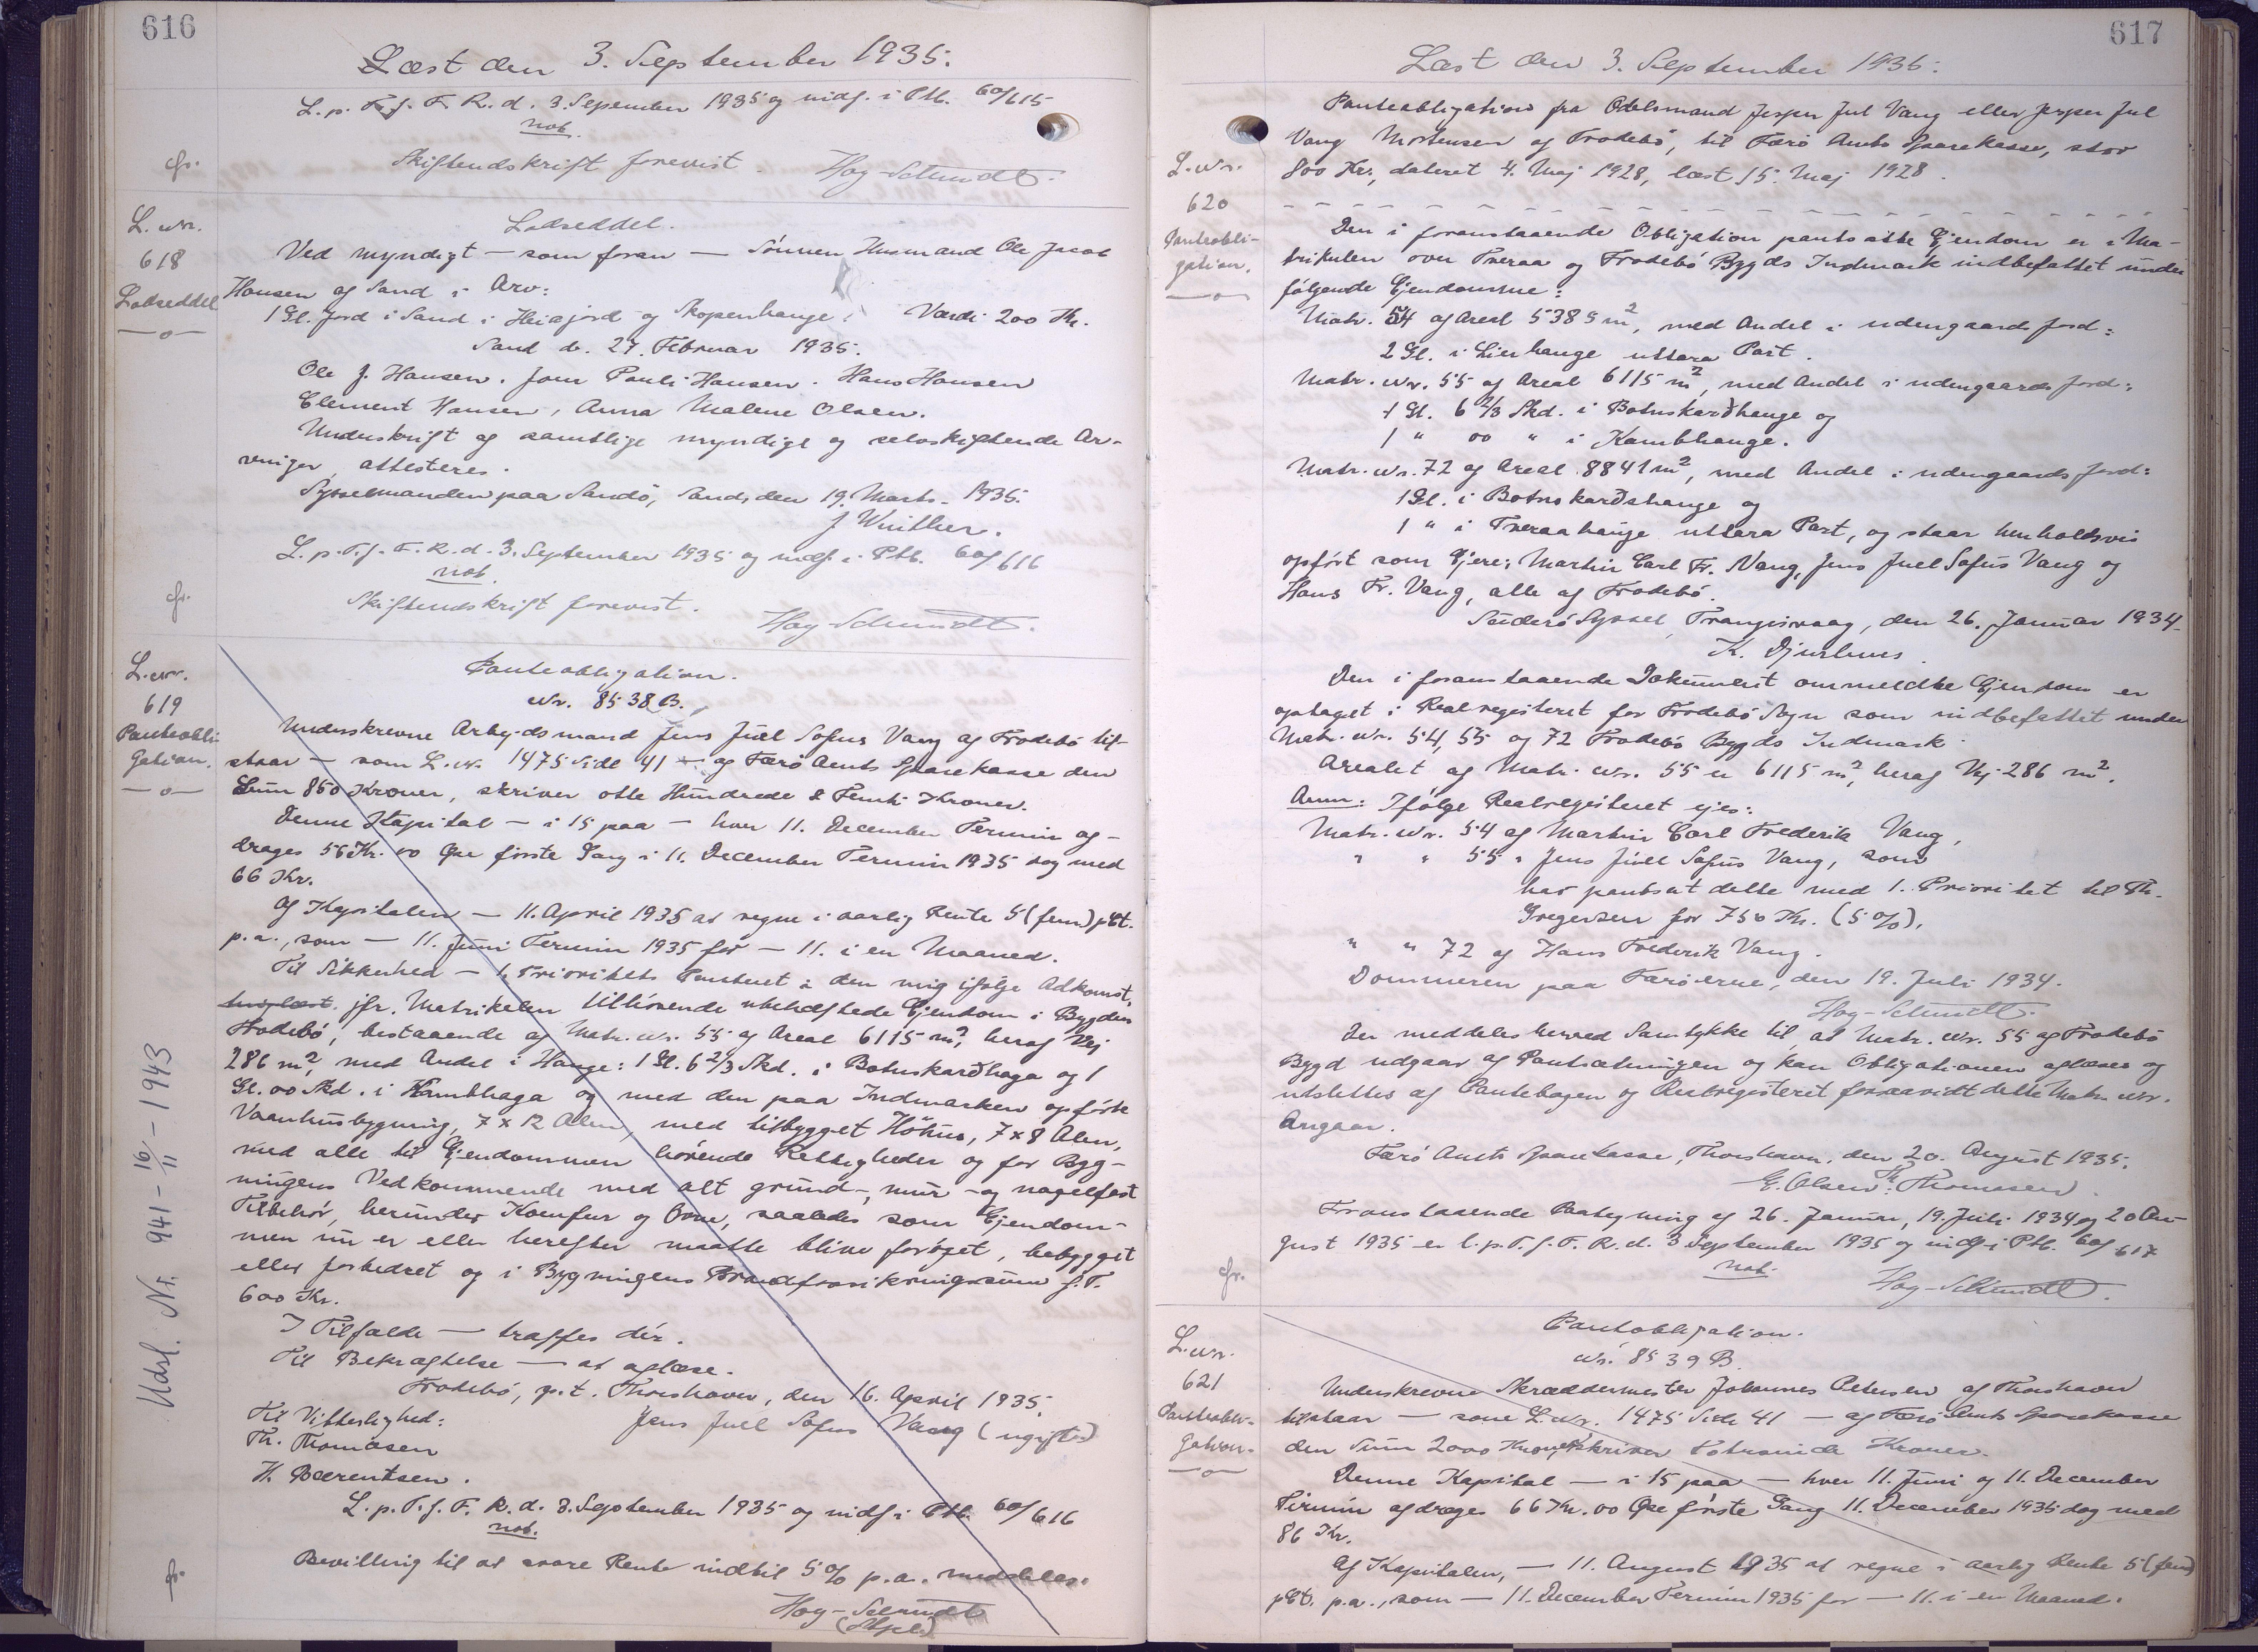 616
Læst den 3. September 1935.
L. p. T. f. F. R. d. 3. Sepember 1935 og indf. i Ptb. 60/615
not.
cfr.
Skiftendskrift forevist. Høy-Schmidt.
L. nr.
618
Lodseddel
—o—
Lodseddel.
Ved myndigt — som foran — Sønnen Husmand Ole Jacob
Hansen af Sand i Arv:
1 Gl. Jord i Sand i Heiajord og Skopenhauge. Værdi 200 Kr.
Sand d. 27. Februar 1935.
Ole J. Hansen. Joen Pauli Hansen. Hans Hansen
Clement Hansen, Anna Malene Olsen.
Underskrift af samtlige myndige og selvskiftende Ar-
vinger, attesteres.
Sysselmanden paa Sandø, Sand, den 19. Marts 1935.
J Winther.
L. p. T. f. F. R. d. 3. September 1935 og indf. i Ptb. 60/616
not.
cfr.
Skiftendskrift forevist.
Høy-Schmidt.
L. nr.
619
Panteobli
gation.
—o—
Panteobligation.
Nr. 8538 B.
Underskrevne Arbejdsmand Jens Juel Sofus Vang af Frodebø til-
staar — som L. nr. 1475 Side 41 — af Færø Amts Sparekasse den
Sum 850 Kroner, skriver otte Hundrede & Femti Kroner.
Denne Kapital — i 15 paa — hver 11. December Termin af-
drages 56 Kr. 00 Øre første Gang i 11. December Termin 1935 dog med
66 Kr.
Af Kapitalen — 11. April 1935 at regne i aarlig Rente 5 (fem) pCt.
p.a., som — 11. Juni Termin 1935 for — 11. i en Maaned.
Til Sikkerhed — 1. Prioritets Panteret i den mig ifølge Adkomst,
tinglæst. jfr. Matrikelen tilhørende ubehæftede Ejendom i Bygden
Frodebø, bestaaende af Matr. nr. 55 af Areal 6115 m², heraf Vej
286 m², med Andel i Hauge: 1 Gl. 6 2/3 Skd. i Botnskarðhaga og 1
Gl. 00 Skd. i Kambhaga og med den paa Indmarken opførte
Vaanhusbygning, 7 x 12 Alen, med tilbygget Høhus, 7 x 8 Alen,
med alle til Ejendommen hørende Rettigheder og for Byg-
ningens Vedkommende med alt grund-, mur- og nagelfast
Tilbehør, herunder Komfur og Ovne, saaledes som Ejendom-
men nu er eller herefter maatte blive forøget, bebygget
eller forbedret og i Bygningens Brandforsikringssum f. T.
600 Kr.
I Tilfælde — træffes dér.
Til Bekræftelse — at aflæse.
Frodebø, p.t. Thorshavn, den 16. April 1935.
Til Vitterlighed: Jens Juel Sofus Vang (ugift)
Th. Thomasen
H. Bærentsen.
L. p. T. f. F. R. d. 3. September 1935 og indf. i Ptb. 60/616
not.
cfr.
Bevilling til at svare Rente indtil 5% p.a. meddeles.
Høy-Schmidt
(Stpl.)
Udsl. Nr. 941 - 16/11 - 1943
617
Læst den 3. September 1935.
L. nr.
620
Panteobli-
gation.
—o—
Panteobligation fra Odelsmand Jesper Jul Vang eller Jesper Jul
Vang Mortensen af Frodebø, til Færø Amts Sparekasse, stor
800 Kr., dateret 4. Maj 1928, læst 15. Maj 1928.
Den i foranstaaende Obligation pantsatte Ejendom er i Ma-
trikulen over Tveraa og Frodebø Bygds Indmark indbefattet under
følgende Ejendomme:
Matr. 54 af Areal 5389 m², med Andel i udengaards Jord:
2 Gl. i Lierhauge uttara Part.
Matr. nr. 55 af Areal 6115 m², med Andel i udengaards Jord:
1 Gl. 6 2/3 Skd. i Botnskarðhauge og
1 " 00 " i Kambhauge.
Matr. nr. 72 af Areal 8841 m², med Andel i udengaards Jord:
1 Gl. i Botnskarðshauge og
1 " i Tveraahauge uttara Part, og staar henholdsvis
opført som Ejere: Martin Carl Fr. Vang, Jens Juel Sofus Vang og
Hans Fr. Vang, alle af Frodebø.
Suderø Syssel, Trangisvaag, den 26. Januar 1934.
K. Djurhuus.
Den i foranstaaende Dokument ommeldte Ejendom er
optaget i Realregisteret for Frodebø Sogn som indbefattet under
Matr. nr. 54, 55 og 72 Frodebø Bygds Indmark.
Arealet af Matr. nr. 55 er 6115 m², heraf Vej 286 m².
Anm: Ifølge Realregisteret ejes:
Matr. nr. 54 af Martin Carl Frederik Vang,
" " 55 " Jens Juel Sofus Vang, som
har pantsat dette med 1. Prioritet til Th.
Gregersen for 750 Kr. (5%).
" " 72 af Hans Frederik Vang.
Dommeren paa Færøerne, den 19. Juli 1934.
Høy-Schmidt.
Der meddeles herved Samtykke til, at Matr. nr. 55 af Frodebø
Bygd udgaar af Pantsætningen og kan Obligationen aflæses og
udslettes af Pantebogen og Realregisteret forsaavidt dette Matr. nr.
angaar.
Færø Amts Sparekasse, Thorshavn, den 20. August 1935.
E. Olsen. Th. Thomasen.
Foranstaaende Paategning af 26. Januar, 19. Juli 1934 og 20 Au-
gust 1935 er l. p. T. f. F. R. d. 3 September 1935 og indf. i Ptb. 60/617
not.
cfr.
Høy-Schmidt.
L. nr.
621
Panteobli-
gation.
—o—
Pantobligation.
Nr. 8539 B.
Underskrevne Skræddermester Johannes Petersen af Thorshavn
tilstaar — som L. Nr. 1475 Side 41 — af Færø Amts Sparekasse
den Sum 2000 Kroner, skriver Totusinde Kroner.
Denne Kapital — i 15 paa — hver 11. Juni og 11. December
Termin afdrages 66 Kr. 00 Øre første Gang 11. December 1935 dog med
86 Kr.
Af Kapitalen, — 11. August 1935 at regne i aarlig Rente 5 (fem)
pCt. p.a., som — 11. December Termin 1935 for — 11. i en Maaned.